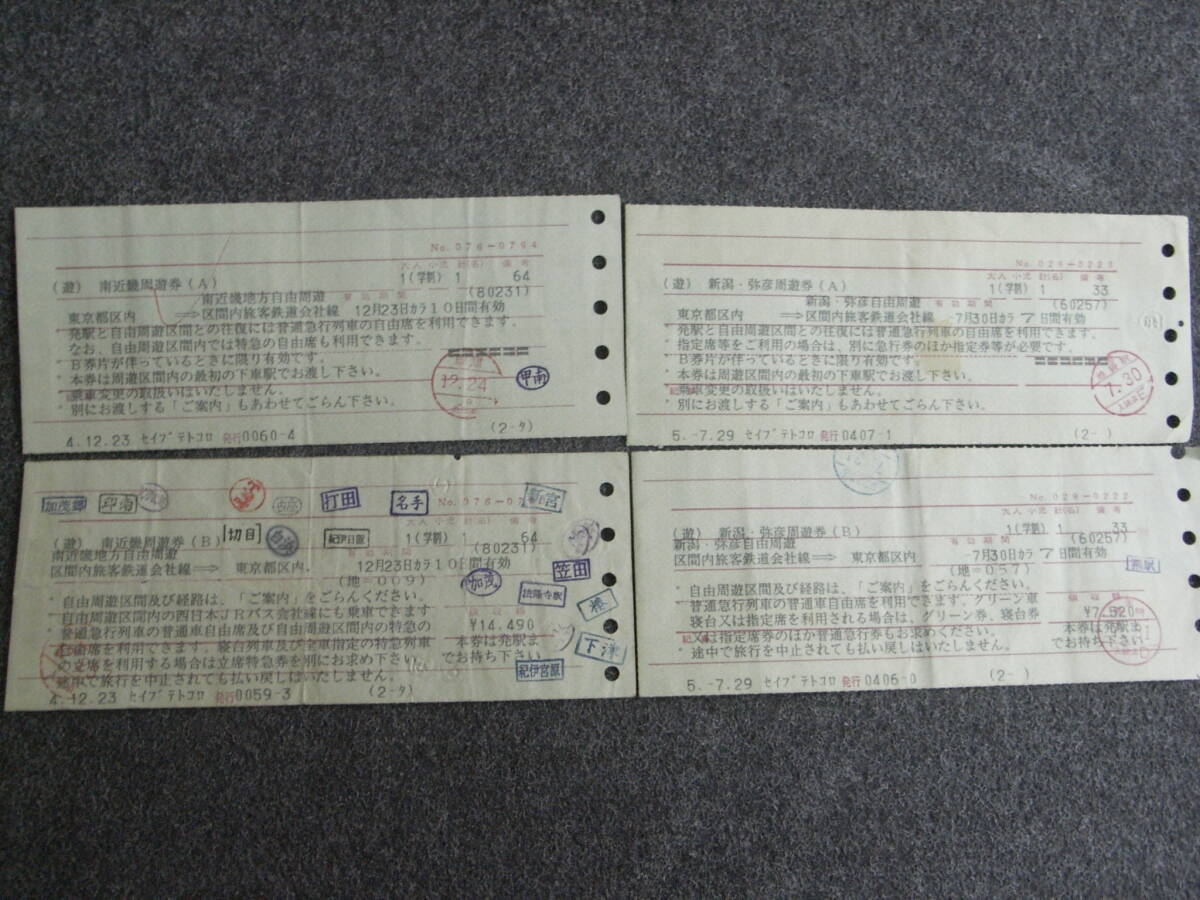 No. 076-0794
大人 小児 計(名) 備考
(遊) 南近畿周遊券(A) 1(学割) 1 64
南近畿地方自由周遊 有効期間 (80231)
東京都区内 ⇒区間内旅客鉄道会社線 12月23日カラ10日間有効
発駅と自由周遊区間との往復には普通急行列車の自由席を利用できます。
なお、自由周遊区間内では特急の自由席も利用できます。
B券片が伴っているときに限り有効です。
* 本券は周遊区間内の最初の下車駅でお渡し下さい。
乗車変更の取扱いはいたしません。
* 別にお渡しする「ご案内」もあわせてごらん下さい。
12.24
甲南
4.12.23 セイブテトコロ 発行0060-4 (2-タ)
No. 028-0223
大人 小児 計(名) 備考
(遊) 新潟・弥彦周遊券(A) 1(学割) 1 33
新潟・弥彦自由周遊 有効期間 (60257)
東京都区内 ⇒区間内旅客鉄道会社線 -7月30日カラ 7日間有効
発駅と自由周遊区間との往復には普通急行列車の自由席を利用できます。
* 指定席等をご利用の場合は、別に急行券のほか指定券等が必要です。
B券片が伴っているときに限り有効です。
* 本券は周遊区間内の最初の下車駅でお渡し下さい。
乗車変更の取扱いはいたしません。
* 別にお渡しする「ご案内」もあわせてごらん下さい。
7.30
5.-7.29 セイブテトコロ 発行0407-1 (2- )
加茂郷 印南 打田 名手 新宮
No. 076-0
大人 小児 計(名) 備考
(遊) 南近畿周遊券(B) 切目 紀伊日置 1(学割) 1 64
南近畿地方自由周遊 有効期間 (80231)
区間内旅客鉄道会社線⇒ 東京都区内 12月23日カラ10日間有効
(地=009) 加茂 笠田
* 自由周遊区間及び経路は、「ご案内」をごらんください。 法隆寺駅
自由周遊区間内の西日本JRバス会社線にも乗車できます 領収額 湊
* 普通急行列車の普通車自由席及び自由周遊区間内の特急の ¥14.490
自由席を利用できます。寝台列車及び全車指定の特急列車 本券は発駅ま
の立席を利用する場合は立席特急券を別にお求め下さい。 でお持ち下さい 下津
途中で旅行を中止されても払い戻しはいたしません。 紀伊宮原
4.12.23 セイブテトコロ 発行0059-3 (2-タ)
No. 028-0222
大人 小児 計(名) 備考
(遊) 新潟・弥彦周遊券(B) 1(学割) 1 33
新潟・弥彦自由周遊 有効期間 (60257)
区間内旅客鉄道会社線⇒ 東京都区内 -7月30日カラ 7日間有効
(地=057)
* 自由周遊区間及び経路は、「ご案内」をごらんください。
普通急行列車の普通車自由席を利用できます。グリーン車 領収額
寝台又は指定席を利用される場合は、グリーン券、寝台券 ¥7,520
又は指定席券のほか普通急行券もお求めください。 本券は発駅ま
* 途中で旅行を中止されても払い戻しはいたしません。 でお持ち下さい
5.-7.29 セイブテトコロ 発行0406-0 (2- )